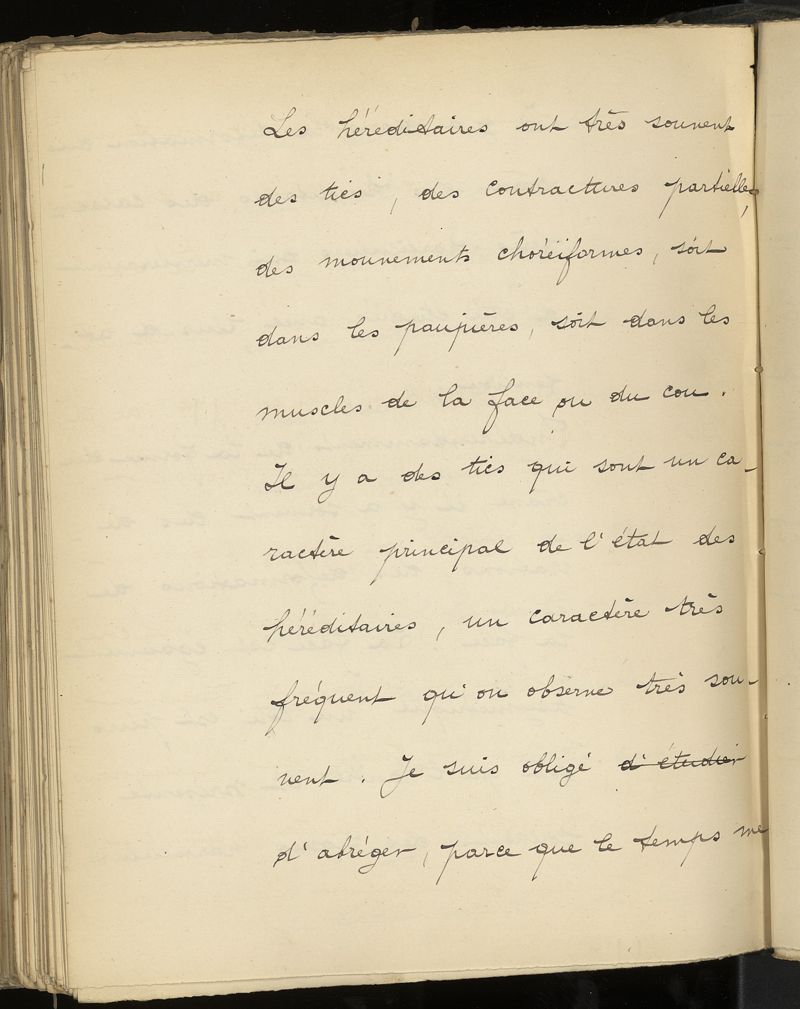 Les héréditaires ont très souvent
des tics, des contractures partielles,
des mouvements choréïformes, soit
dans les paupières, soit dans les
muscles de la face ou du cou.
Il y a des tics qui sont un ca-
ractère principal de l'état des
héréditaires, un caractère très
fréquent qu'on observe très sou-
vent. Je suis obligé d'étudier
d'abréger, parce que le temps me